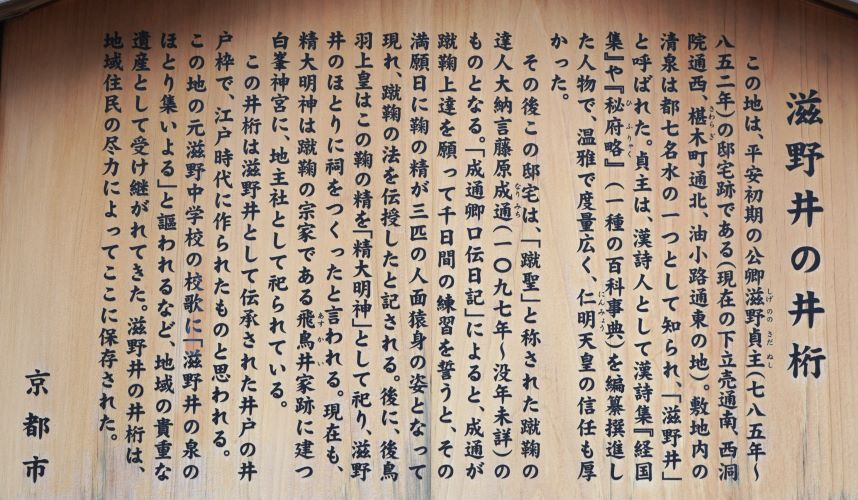 滋野井の井桁
この地は、平安初期の公卿滋野貞主(七八五年〜
八五二年)の邸宅跡である(現在の下立売通南、西洞
院通西、椹木町通北、油小路通東の地)。敷地内の
清泉は都七名水の一つとして知られ、「滋野井」
と呼ばれた。貞主は、漢詩人として漢詩集『経国
集』や『秘府略』(一種の百科事典)を編纂撰進し
た人物で、温雅で度量広く、仁明天皇の信任も厚
かった。
その後この邸宅は、「蹴聖」と称された蹴鞠の
達人大納言藤原成通(一〇九七年〜没年未詳)の
ものとなる。「成通卿口伝日記」によると、成通が
蹴鞠上達を願って千日間の練習を誓うと、その
満願日に鞠の精が三匹の人面猿身の姿となって
現れ、蹴鞠の法を伝授したと記される。後に、後鳥
羽上皇はこの鞠の精を「精大明神」として祀り、滋野
井のほとりに祠をつくったと言われる。現在も、
精大明神は蹴鞠の宗家である飛鳥井家跡に建つ
白峯神宮に、地主社として祀られている。
この井桁は滋野井として伝承された井戸の井
戸枠で、江戸時代に作られたものと思われる。
この地の元滋野中学校の校歌に「滋野井の泉の
ほとり集いよる」と謳われるなど、地域の貴重な
遺産として受け継がれてきた。滋野井の井桁は、
地域住民の尽力によってここに保存された。
京都市